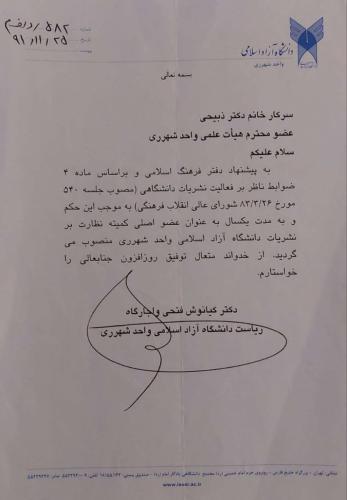 شماره ۵۸۲/د/رفم
تاریخ ۹۱/۱۱/۲۵
دانشگاه آزاد اسلامی
واحد شهرری
بسمه تعالی
سرکار خانم دکتر ذبیحی
عضو محترم هیأت علمی واحد شهرری
سلام علیکم
به پیشنهاد دفتر فرهنگ اسلامی و براساس ماده ۴
ضوابط ناظر بر فعالیت نشریات دانشگاهی (مصوب جلسه ۵۴۰
مورخ ۸۳/۳/۲۶ شورای عالی انقلاب فرهنگی) به موجب این حکم
و به مدت یکسال به عنوان عضو اصلی کمیته نظارت بر
نشریات دانشگاه آزاد اسلامی واحد شهرری منصوب می
گردید. از خدواند متعال توفیق روزافزون جنابعالی را
خواستارم.
دکتر کیانوش فتحی واجارگاه
ریاست دانشگاه آزاد اسلامی واحد شهرری
نشانی: تهران - بزرگراه خلیج فارس - روبروی حرم امام خمینی (ره) مجتمع دانشگاهی یادگار امام (ره) - صندوق پستی:
www.iausr.ac.ir